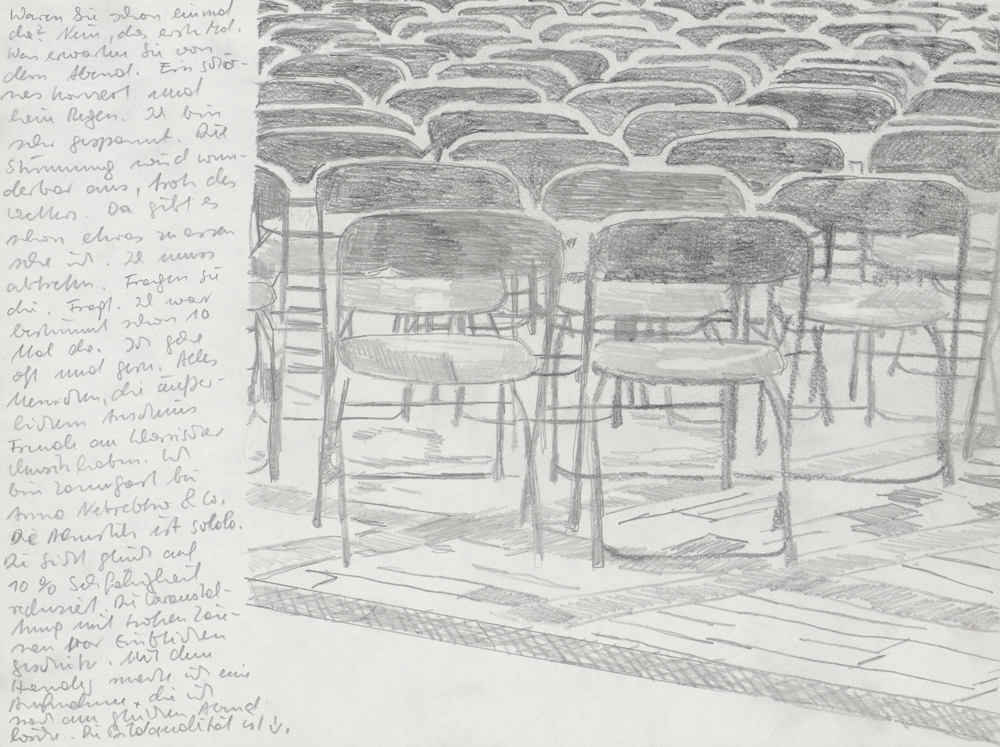 Waren Sie schon einmal
da? Nein, das erste Mal.
Was erwarten Sie von
dem Abend. Ein schö-
nes Konzert und
kein Regen. Ich bin
sehr gespannt. Die
Stimmung wird wun-
derbar aus, trotz des
Wetters. Da gibt es
schon etwas zu essen
sehe ich. Ich muss
abtreten. Fragen Sie
die. Fragt. Ich war
bestimmt schon 10
Mal da. Ich gehe
oft und gern. Alles
Menschen, die außer-
lichem Anschein
Freude an klassischer
Musik haben. Ich
bin Zaungast bei
Anna Netrebko & Co.
Die Akustik ist sololo.
Die Sicht gleich auf
10 % Sehfähigkeit
reduziert. Die Veranstal-
tung mit hohen Zäu-
nen vor Einblicken
geschützt. Mit dem
Handy mache ich eine
Aufnahme, die ich
noch am gleichen Abend
lösche. Die Bildqualität ist ↓.